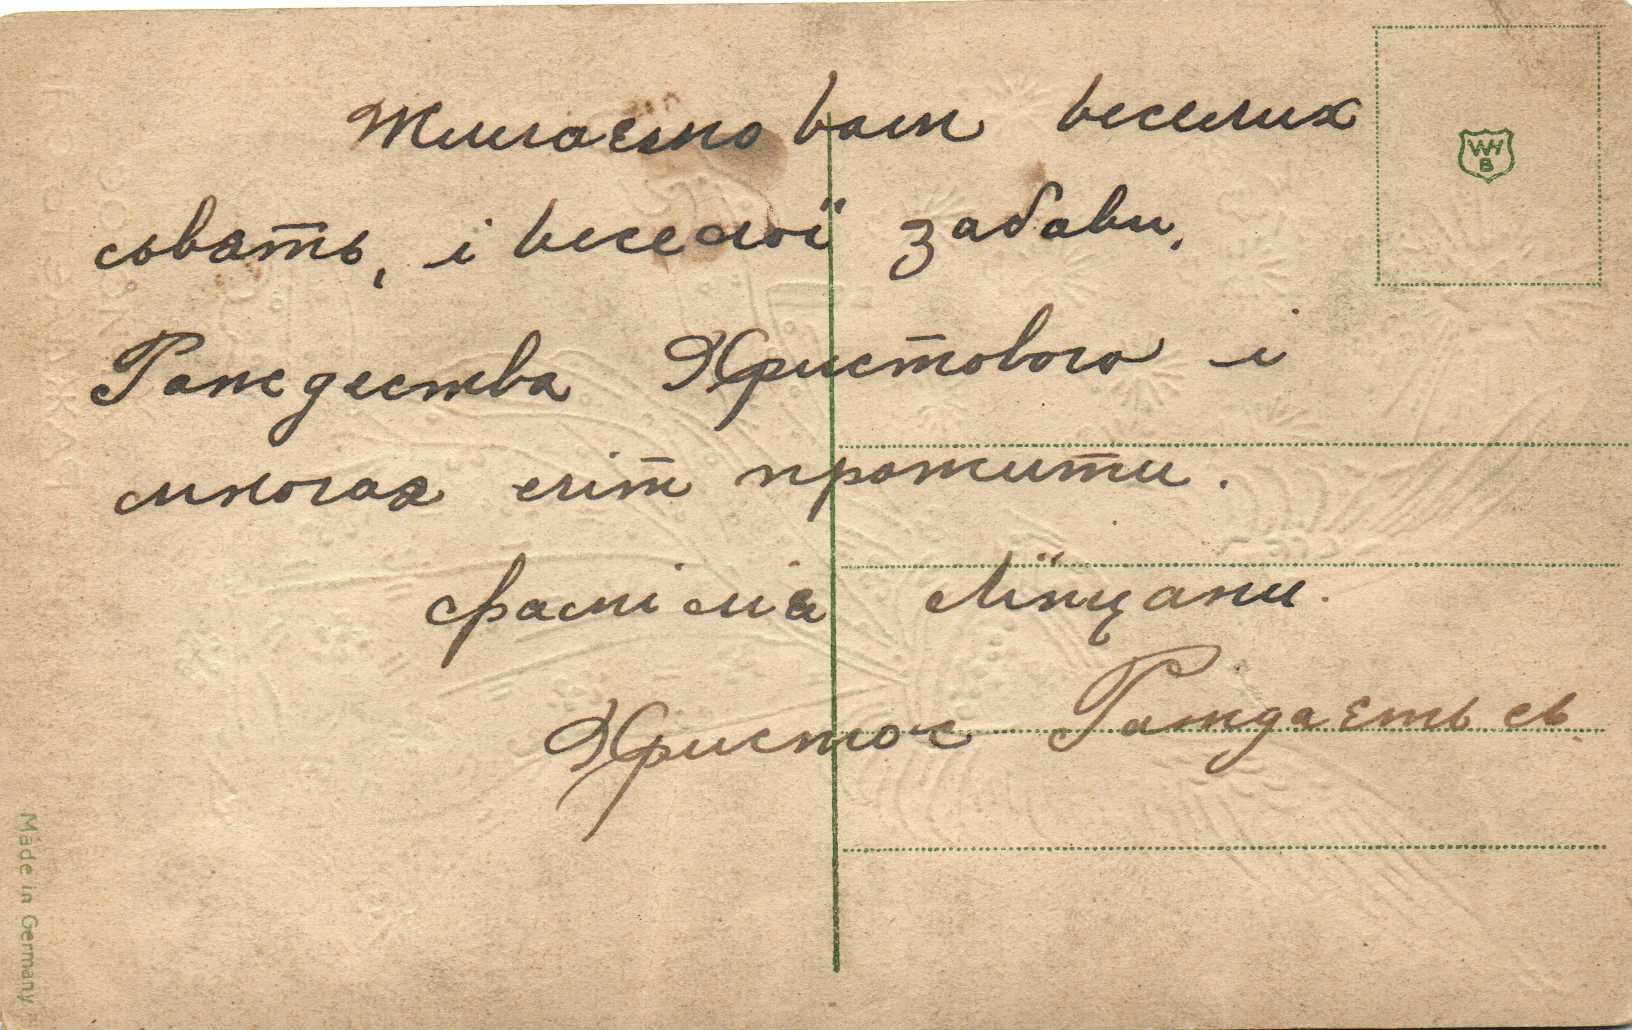 Жичаємо вам веселих
сьвять, і веселої забави,
Раждества Христового і
многая літ прожити.
фамілія
Христос Раждаєть сь
WH
B
Made in Germany